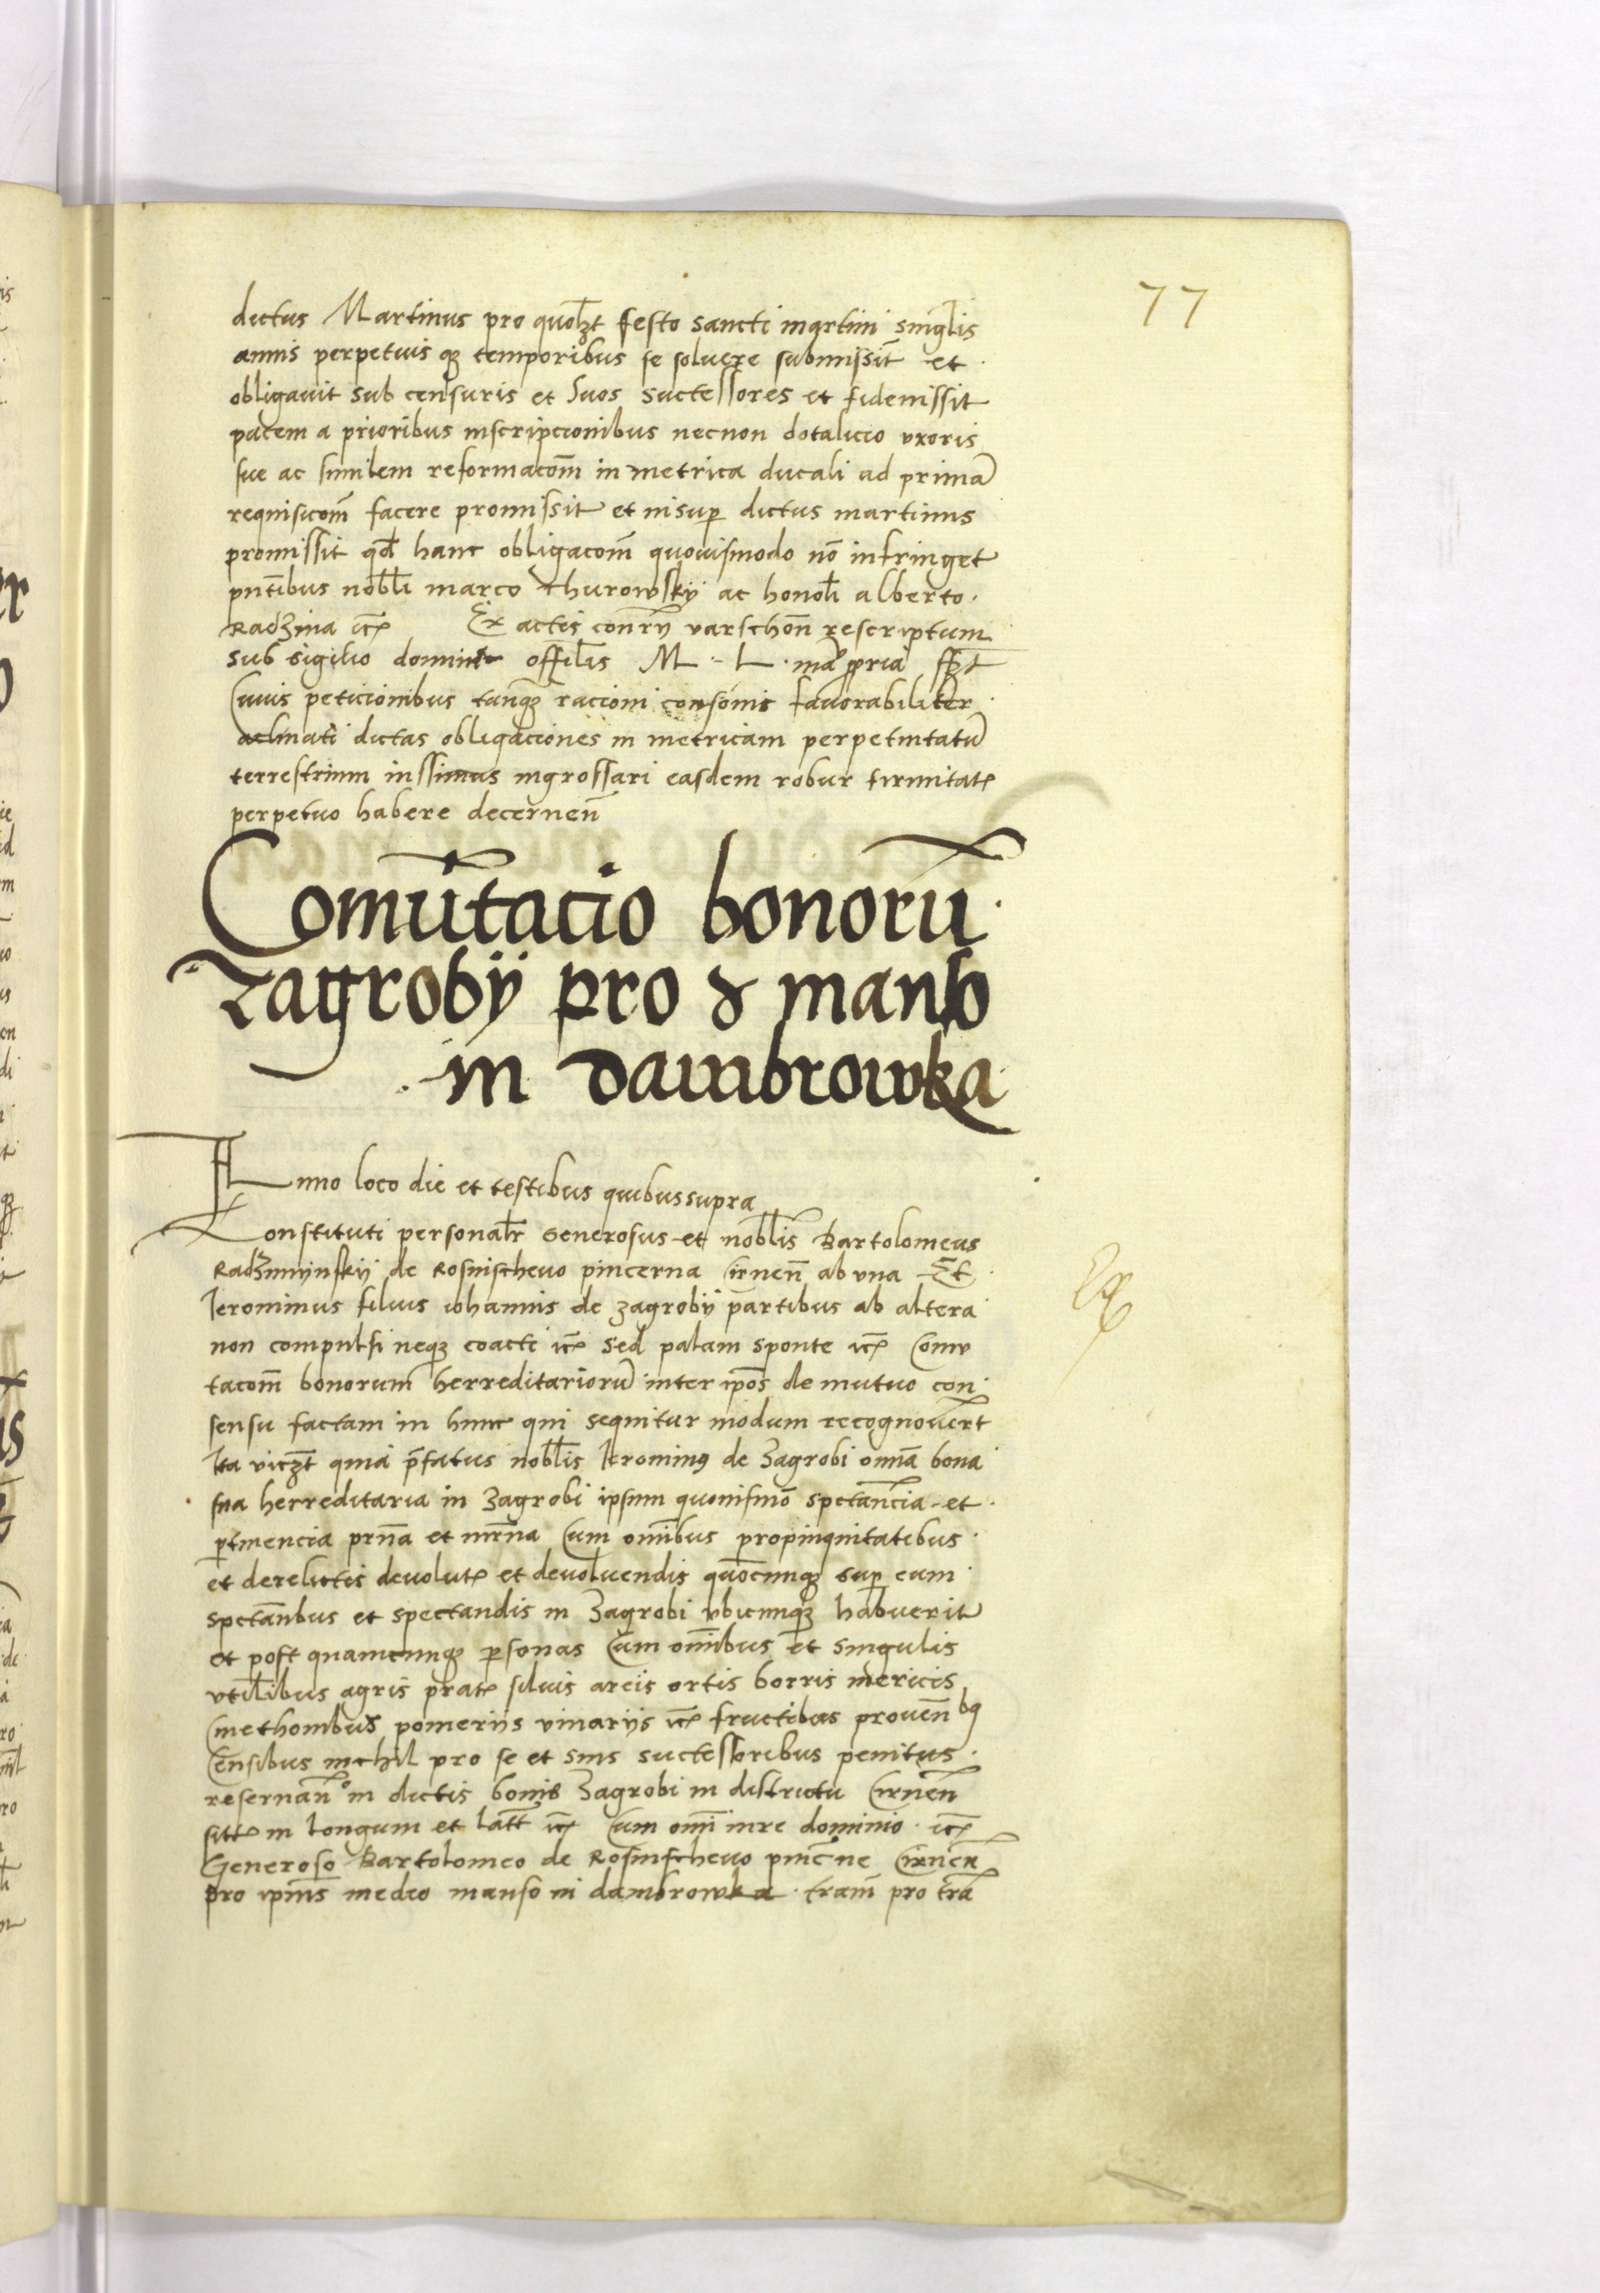 77
dictus Martinus pro quolꝫt festo sancti martini singl̃is
annis perpetuis qꝫ temporibus se soluere submissit et
obligauit sub censuris et suos suctessores et fideiussit
pacem a prioribus inscripcionibus necnon dotalicio vxoris
sue ac similem reformacom̃ in metrica ducali ad primã
requisicom̃ facere promissit et insup dictus martinus
promissit qd̃ hanc obligacom̃ quouismodo nõ infringet
pn̄tibus nobl̃i marco thurowskÿ ac honol̃i alberto
Radzina ic̃
Ex actis con̄rÿ varschoñ rescriptum
sub sigilio domini offil̃is M L ma ꝓpria sszt
Cuius peticionibus tanqꝫ racioni consonis fauorabiliter
aclinati dictas obligaciones in metricam perpetuitatũ
terrestrium iussimus ingrossari easdem robur firmitatꝭ
perpetuo habere decerneñ
Comũtacio bonorũ
Zagrobÿ pro ꝛ manso
in dambrowka
Anno loco die et testibus quibus supra
Constituti personal̃r Generosus et nobl̃is Bartolomeus
Radzmÿnskÿ de Rosnischeuo pincerna Cirneñ ab vna Et
Ieronimus filius iohannis de zagrobÿ partibus ab altera
non compulsi neqꝫ coacti ic̃ sed palam sponte ic̃ Comu
tacom̃ bonorum herreditariorũ inter ip̃os de mutuo con
sensu factam in hunc qui sequitur modum recognouer̃t
Ita viczt̃ quia p̃fatus nobl̃is Ieronimꝰ de Zagrobi om̃ia bona
sua herreditaria in Zagrobi ipsum quouismõ spctanc̃ia et
ptinencia prñia et mr̃nia Cum om̃ibus propinquitatibus
et derelictis deuolutꝭ et deuoluendis quõcunqꝫ sup eum
spctañbus et spectandis in Zagrobi vbicunqꝫ habuerit
et post quamcunqꝫ psonas Cum om̃ibus et singulis
vtil̃ibus agris pratꝭ siluis areis ortis borris mericis
Cmethonibus pomeriis vinariis ic̃ fructibus proueñbꝰ
Censibus nichil pro se et suis suctessoribus penitus
reseruañᵒ in dictis bonis Zagrobi in districtu Cirneñ
sitꝭ in longum et latt̃ ic̃ Cum om̃i iure dominio ic̃
Generoso Bartolomeo de Rosnischeuo pinc̃ne Cirneñ
pro ipius medio manso in dambrowka tram̃ pro tra